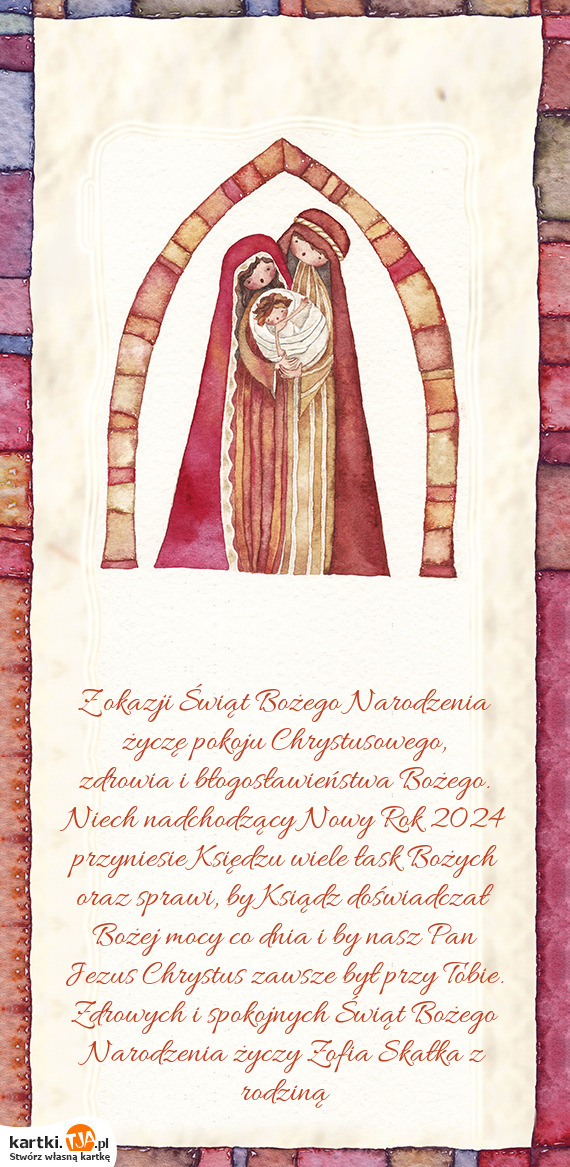 Z okazji Świąt Bożego Narodzenia
życzę pokoju Chrystusowego,
zdrowia i błogosławieństwa Bożego.
Niech nadchodzący Nowy Rok 2024
przyniesie Księdzu wiele łask Bożych
oraz sprawi, by Ksiądz doświadczał
Bożej mocy co dnia i by nasz Pan
Jezus Chrystus zawsze był przy Tobie.
Zdrowych i spokojnych Świąt Bożego
Narodzenia życzy Zofia Skałka z
rodziną
kartki.TJA.pl
Stwórz własną kartkę